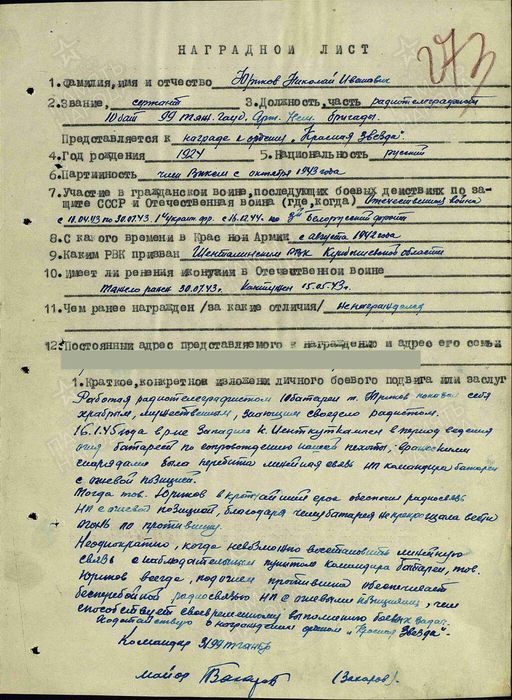 273
НАГРАДНОЙ ЛИСТ
1. Фамилия, имя и отчество Юртков Николай Иванович
2. Звание, сержант 3. Должность, часть радиотелеграфист
10 бат 99 тяж. гауб. Арт. бригады.
Представляется к награде к ордену "Красная Звезда".
4. Год рождения 1924 5. Национальность русский
6. Партийность член ВЛКСМ с октября 1943 года
7. Участие в гражданской войне, последующих боевых действиях по за-
щите СССР и Отечественная война (где, когда) Отечественная война
с 11.04.43 по 30.07.43. 1й Украин. фр. с 16.12.44. по Белорусский фронт
8. С какого времени в Красной Армии с августа 1942 года
9. Каким РВК призван Шенталинским РВК Куйбышевской области
10. Имеет ли ренения иконужии в Отечественной воине
Тяжело ранен 30.07.43. Контужен 15.05.43г.
11. Чем ранее награжден /за какие отличия/ не награждался
12. Постоянный адрес представляемого к награждению и адрес его семьи
1. Краткое, конкретное изложени личного боевого подвига или заслуг
Работая радиотелеграфистом 10 батареи т. Юртков показал себя
храбрым, мужественным, знающим свое дело радистом.
16.1.45 года в р-не Западнее в период ведения
огня батареей по сопровождению нашей пехоты, вражескими
снарядами была перебита линейная связь НП командира батареи
с огневой позицией.
Тогда тов. Юртков в кратчайший срок обеспечил радиосвязь
НП с огневой позицией, благодаря чему батарея не прекращала вести
огонь по противнику.
Неоднократно, когда невозможно восстановить линейную
связь с наблюдательным пунктом командира батареи, тов.
Юртков всегда, под огнем противника обеспечивает
бесперебойной радиосвязью НП с огневыми позициями, чем
способствует своевременному выполнению боевых задач.
Ходатайствую о награждении орденом "Красная Звезда".
Командир 3/99 тгабр
майор Захаров (Захаров).